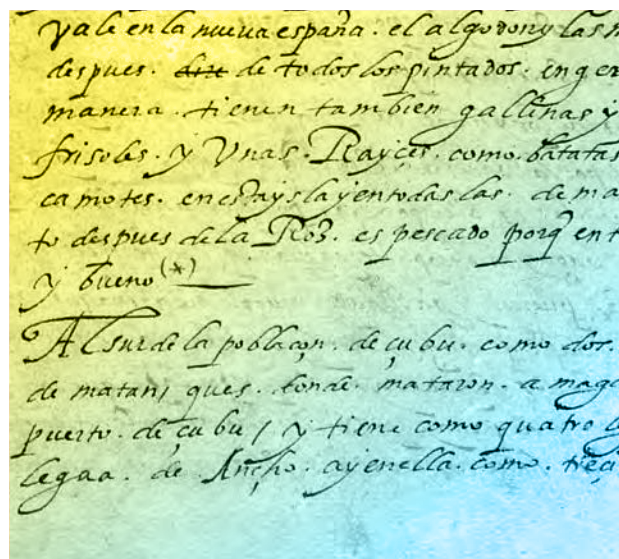 vale en la nueua españa. el algodon y las m
despues. dire de todos los pintados. en ger
manera. tienen tambien gallinas y
frisoles. y Vnas. Rayçes. como. batatas
camotes. en esta ysla y en todas las. de ma
to despues de la Roz. es pescado porq̃ en t
y bueno (*)
Al sur de la poblaçon. de çubu. como dos.
de matan, ques. donde. mataron. a maga
puerto. de çubu, y tiene como quatro l
legua. de Ancho. ay en ella. como. treç